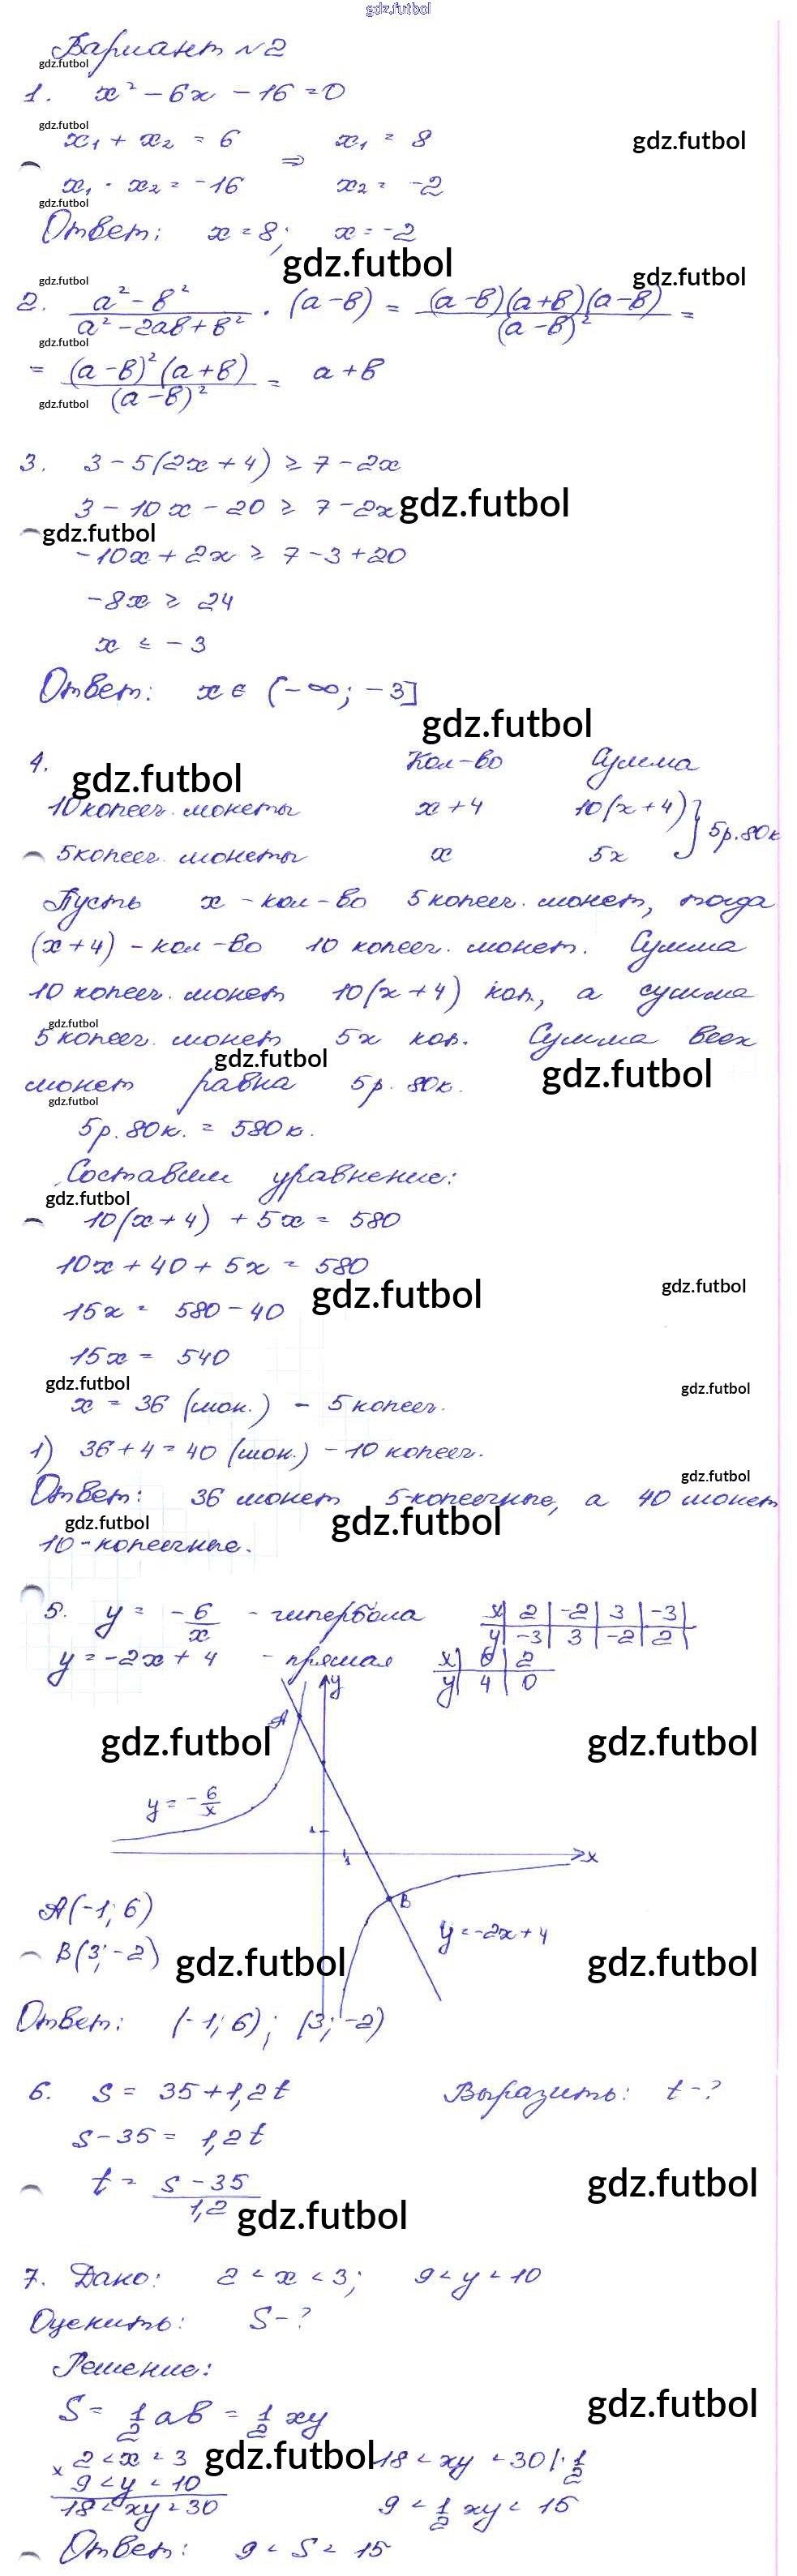 gdz.futbol
Вариант №2
gdz.futbol
1. x² - 6x - 16 = 0
gdz.futbol
x₁ + x₂ = 6 ⇒ x₁ = 8
gdz.futbol
x₁ · x₂ = -16 x₂ = -2
gdz.futbol
Ответ: x = 8; x = -2
gdz.futbol
gdz.futbol gdz.futbol
2. (a² - b²)/(a² - 2ab + b²) · (a - b) = ((a - b)(a + b)(a - b))/(a - b)² =
gdz.futbol
= ((a - b)²(a + b))/(a - b)² = a + b
gdz.futbol
3. 3 - 5(2x + 4) ≥ 7 - 2x
3 - 10x - 20 ≥ 7 - 2x gdz.futbol
gdz.futbol
-10x + 2x ≥ 7 - 3 + 20
-8x ≥ 24
x ≤ -3
Ответ: x ∈ (-∞; -3]
gdz.futbol
4. Кол-во Сумма
gdz.futbol
10 копееч. монеты x + 4 10(x + 4) } 5р. 80к
5 копееч. монеты x 5x
Пусть x - кол-во 5 копееч. монет, тогда
(x + 4) - кол-во 10 копееч. монет. Сумма
10 копееч. монет 10(x + 4) коп, а сумма
gdz.futbol
5 копееч. монет 5x коп. Сумма всех
gdz.futbol gdz.futbol
монет равна 5р. 80к.
gdz.futbol
5р. 80к. = 580к.
Составим уравнение:
gdz.futbol
10(x + 4) + 5x = 580
10x + 40 + 5x = 580
gdz.futbol gdz.futbol
15x = 580 - 40
15x = 540
gdz.futbol gdz.futbol
x = 36 (мон.) - 5 копееч.
1) 36 + 4 = 40 (мон.) - 10 копееч.
gdz.futbol
Ответ: 36 монет 5-копеечные, а 40 монет
gdz.futbol gdz.futbol
10-копеечные.
5. y = -6/x - гипербола x | 2 | -2 | 3 | -3 |
y | -3 | 3 | -2 | 2 |
y = -2x + 4 - прямая x | 0 | 2
y | 4 | 0
y
A
gdz.futbol gdz.futbol
y = -6/x
1
1 x
B
A(-1; 6)
y = -2x + 4
B(3; -2)
gdz.futbol gdz.futbol
Ответ: (-1; 6); (3; -2)
6. S = 35 + 1,2t Выразить: t - ?
S - 35 = 1,2t
t = (S - 35)/1,2
gdz.futbol
gdz.futbol
7. Дано: 2 < x < 3; 9 < y < 10
Оценить: S - ?
Решение:
gdz.futbol
S = 1/2 ab = 1/2 xy
× 2 < x < 3 gdz.futbol 18 < xy < 30 | · 1/2
9 < y < 10
18 < xy < 30 9 < 1/2 xy < 15
Ответ: 9 < S < 15